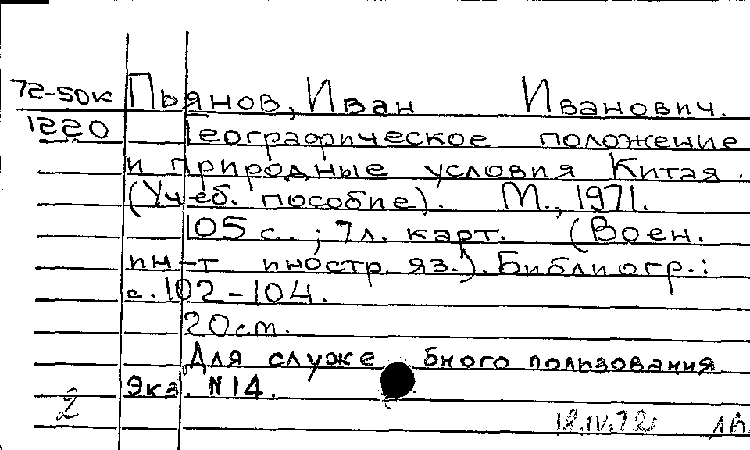 72-50к Пьянов, Иван Иванович.
1220 Географическое положение
и природные условия Китая.
(Учеб. пособие). М., 1971.
105 с. ; 7л. карт. (Воен.
ин-т иностр. яз.). Библиогр.:
с. 102-104.
20см.
Для служе бного пользования
Экз. N14.
2 12.IV.72